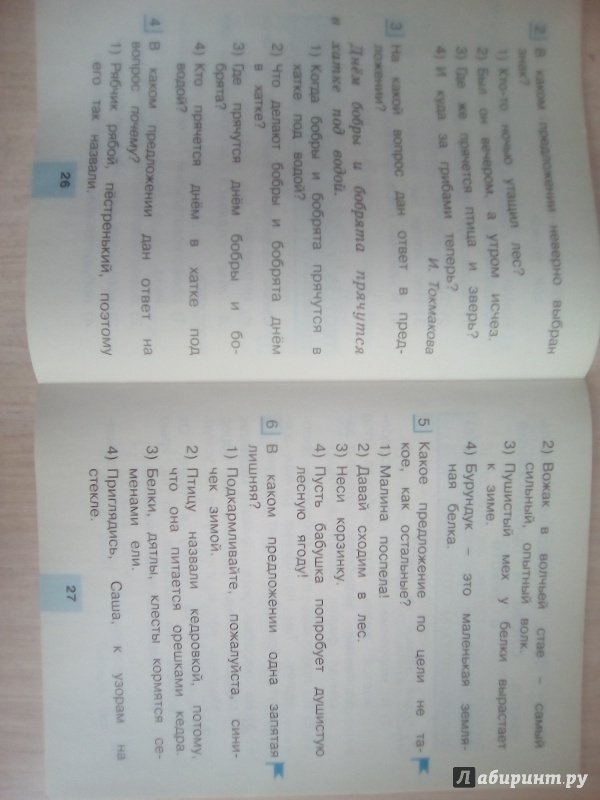 2 В каком предложении неверно выбран
знак?
1) Кто-то ночью утащил лес?
2) Был он вечером, а утром исчез.
3) Где же прячется птица и зверь?
4) И куда за грибами теперь?
И. Токмакова
3 На какой вопрос дан ответ в пред-
ложении?
Днём бобры и бобрята прячутся
в хатке под водой.
1) Когда бобры и бобрята прячутся в
хатке под водой?
2) Что делают бобры и бобрята днём
в хатке?
3) Где прячутся днём бобры и бо-
брята?
4) Кто прячется днём в хатке под
водой?
4 В каком предложении дан ответ на
вопрос почему?
1) Рябчик рябой, пёстренький, поэтому
его так назвали.
26
2) Вожак в волчьей стае – самый
сильный, опытный волк.
3) Пушистый мех у белки вырастает
к зиме.
4) Бурундук – это маленькая земля-
ная белка.
5 Какое предложение по цели не та-
кое, как остальные?
1) Малина поспела!
2) Давай сходим в лес.
3) Неси корзинку.
4) Пусть бабушка попробует душистую
лесную ягоду!
6 В каком предложении одна запятая
лишняя?
1) Подкармливайте, пожалуйста, сини-
чек зимой.
2) Птицу назвали кедровкой, потому,
что она питается орешками кедра.
3) Белки, дятлы, клесты кормятся се-
менами ели.
4) Приглядись, Саша, к узорам на
стекле.
27
Лабиринт.ру